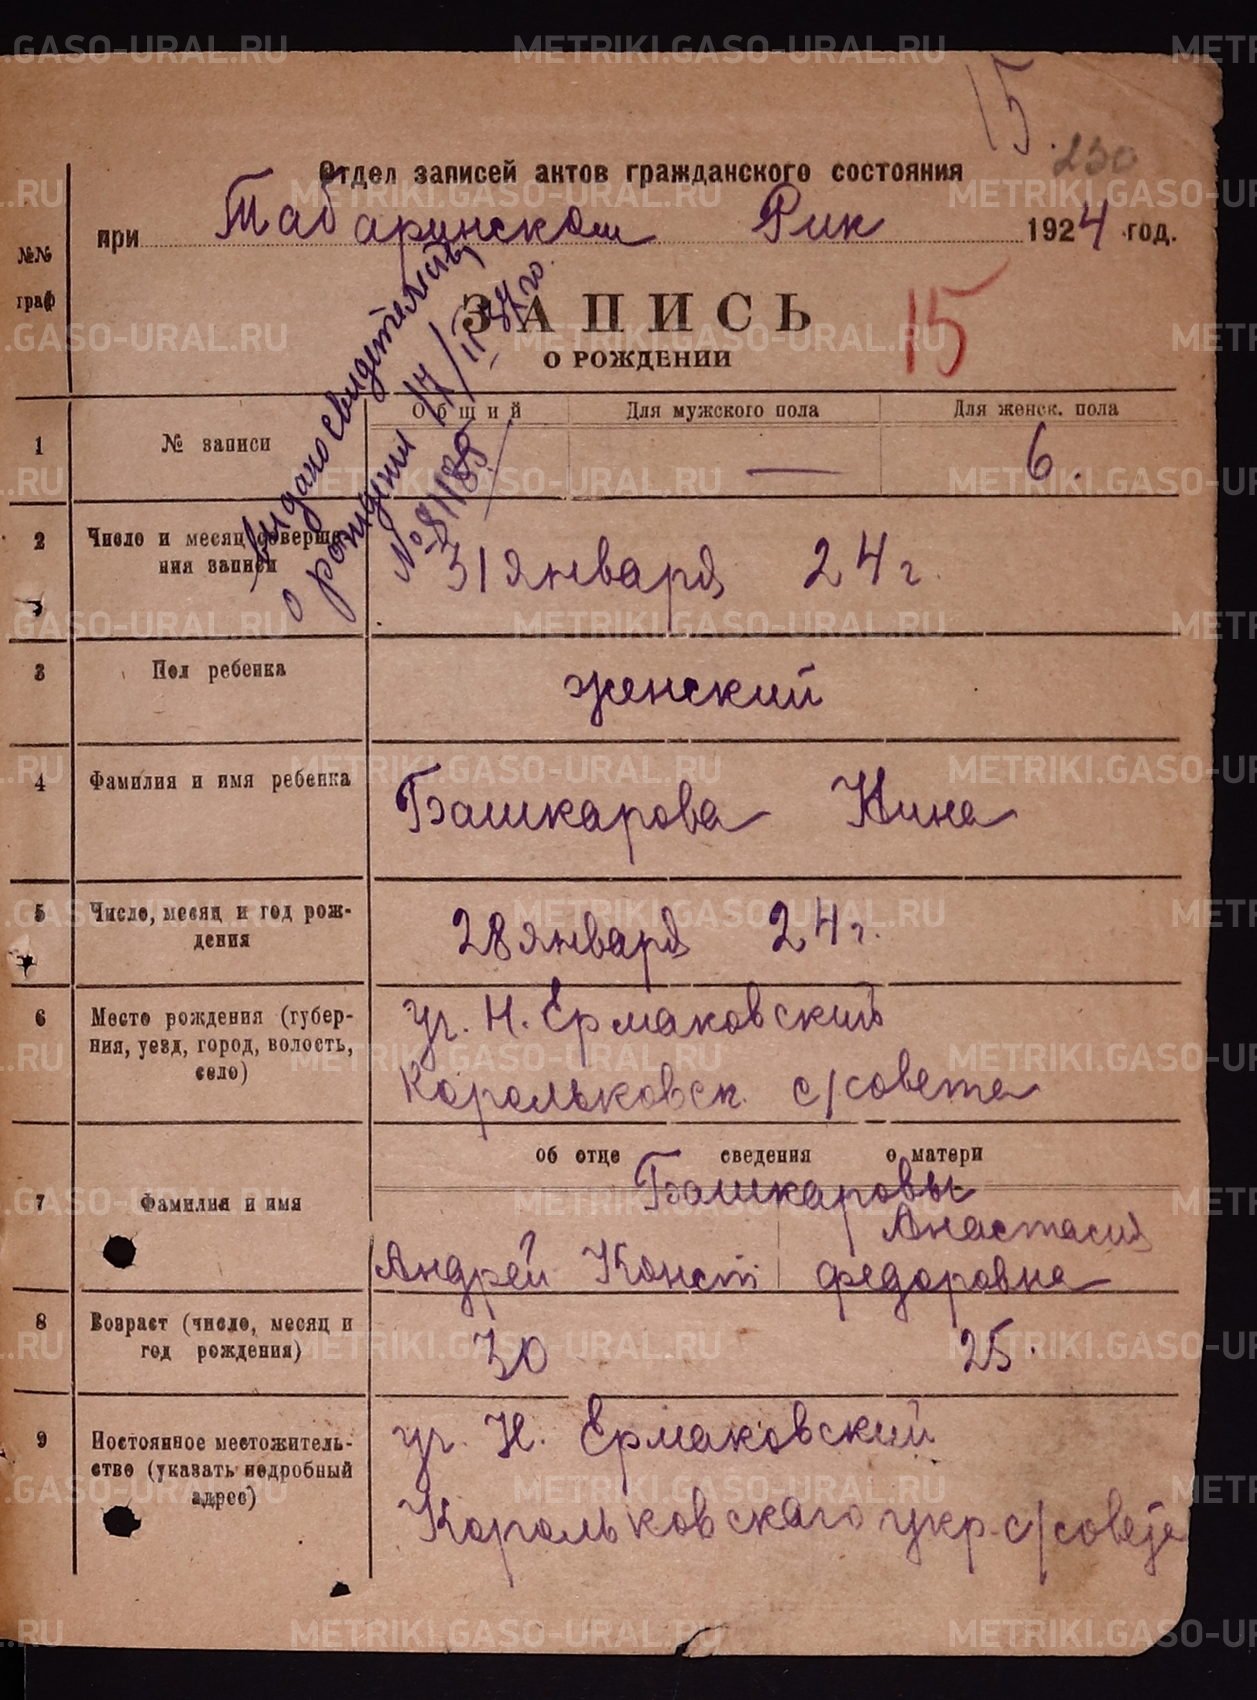 15.
230
Отдел записей актов гражданского состояния
при Табаринском Рик 1924 год.
№№
граф
ЗАПИСЬ
О РОЖДЕНИИ
15
выдано свидетельство
о рождении 17/II
№ 81185
Общий Для мужского пола Для женск. пола
1 № записи — 6.
2 Число и месяц соверше-
ния записи
31 января 24 г.
3 Пол ребенка женский
4 Фамилия и имя ребенка Башкарова Нина
5 Число, месяц и год рож-
дения
28 января 24 г.
6 Место рождения (губер-
ния, уезд, город, волость,
село)
уч. Н. Ермаковский
Корольковск. с/совета
об отце сведения о матери
7 Фамилия и имя
Башкаровы
Анастасия
Андрей Конст Федоровна
8 Возраст (число, месяц и
год рождения)
30 25.
9 Постоянное местожитель-
ство (указать подробный
адрес)
уч. Н. Ермаковский
Корольковскаго укр. с/совета
METRIKI.GASO-URAL.RU